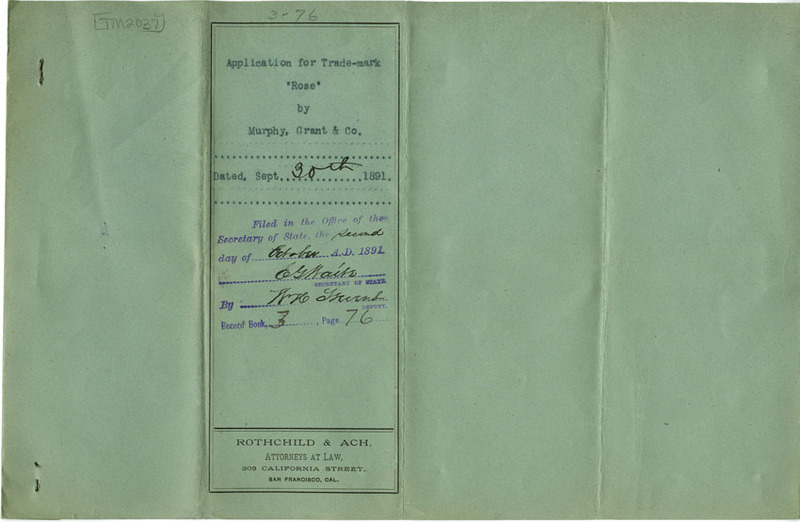 TM2037
3-76
Application for Trade-mark
"Rose"
by
Murphy, Grant & Co.
Dated, Sept. 30th 1891.
Filed in the Office of the
Secretary of State, the second
day of October A.D. 1891
E G Waite
SECRETARY OF STATE.
By W H
DEPUTY.
Record Book, 3, Page 76
ROTHCHILD & ACH,
ATTORNEYS AT LAW,
303 CALIFORNIA STREET,
SAN FRANCISCO, CAL.